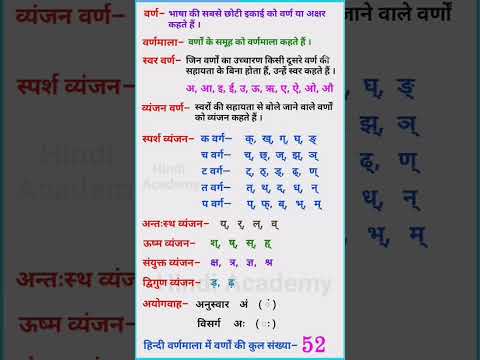 वर्ण– भाषा की सबसे छोटी इकाई को वर्ण या अक्षर
कहते हैं ।
वर्णमाला– वर्णों के समूह को वर्णमाला कहते हैं ।
स्वर वर्ण– जिन वर्णों का उच्चारण किसी दूसरे वर्ण की
सहायता के बिना होता हैं, उन्हें स्वर कहते हैं ।
अ, आ, इ, ई, उ, ऊ, ऋ, ए, ऐ, ओ, औ
व्यंजन वर्ण– स्वरों की सहायता से बोले जाने वाले वर्णों
को व्यंजन कहते हैं ।
स्पर्श व्यंजन– क वर्ग– क्, ख्, ग्, घ्, ङ्
च वर्ग– च्, छ्, ज्, झ्, ञ्
ट वर्ग– ट्, ठ्, ड्, ढ्, ण्
त वर्ग– त्, थ्, द्, ध्, न्
प वर्ग– प्, फ्, ब्, भ्, म्
अन्तःस्थ व्यंजन– य्, र्, ल्, व्
ऊष्म व्यंजन– श्, ष्, स्, ह्
संयुक्त व्यंजन– क्ष, त्र, ज्ञ, श्र
द्विगुण व्यंजन– ड़, ढ़
अयोगवाह– अनुस्वार अं (ं)
विसर्ग अः (ः)
हिन्दी वर्णमाला में वर्णों की कुल संख्या– 52
Hindi Academy
व्यंजन वर्ण–
स्पर्श व्यंजन–
अन्तःस्थ व्यंजन
ऊष्म व्यंजन–
जाने वाले वर्णों
घ्, ङ्
झ्, ञ्
ढ्, ण्
ध्, न्
भ्, म्
Hindi Academy